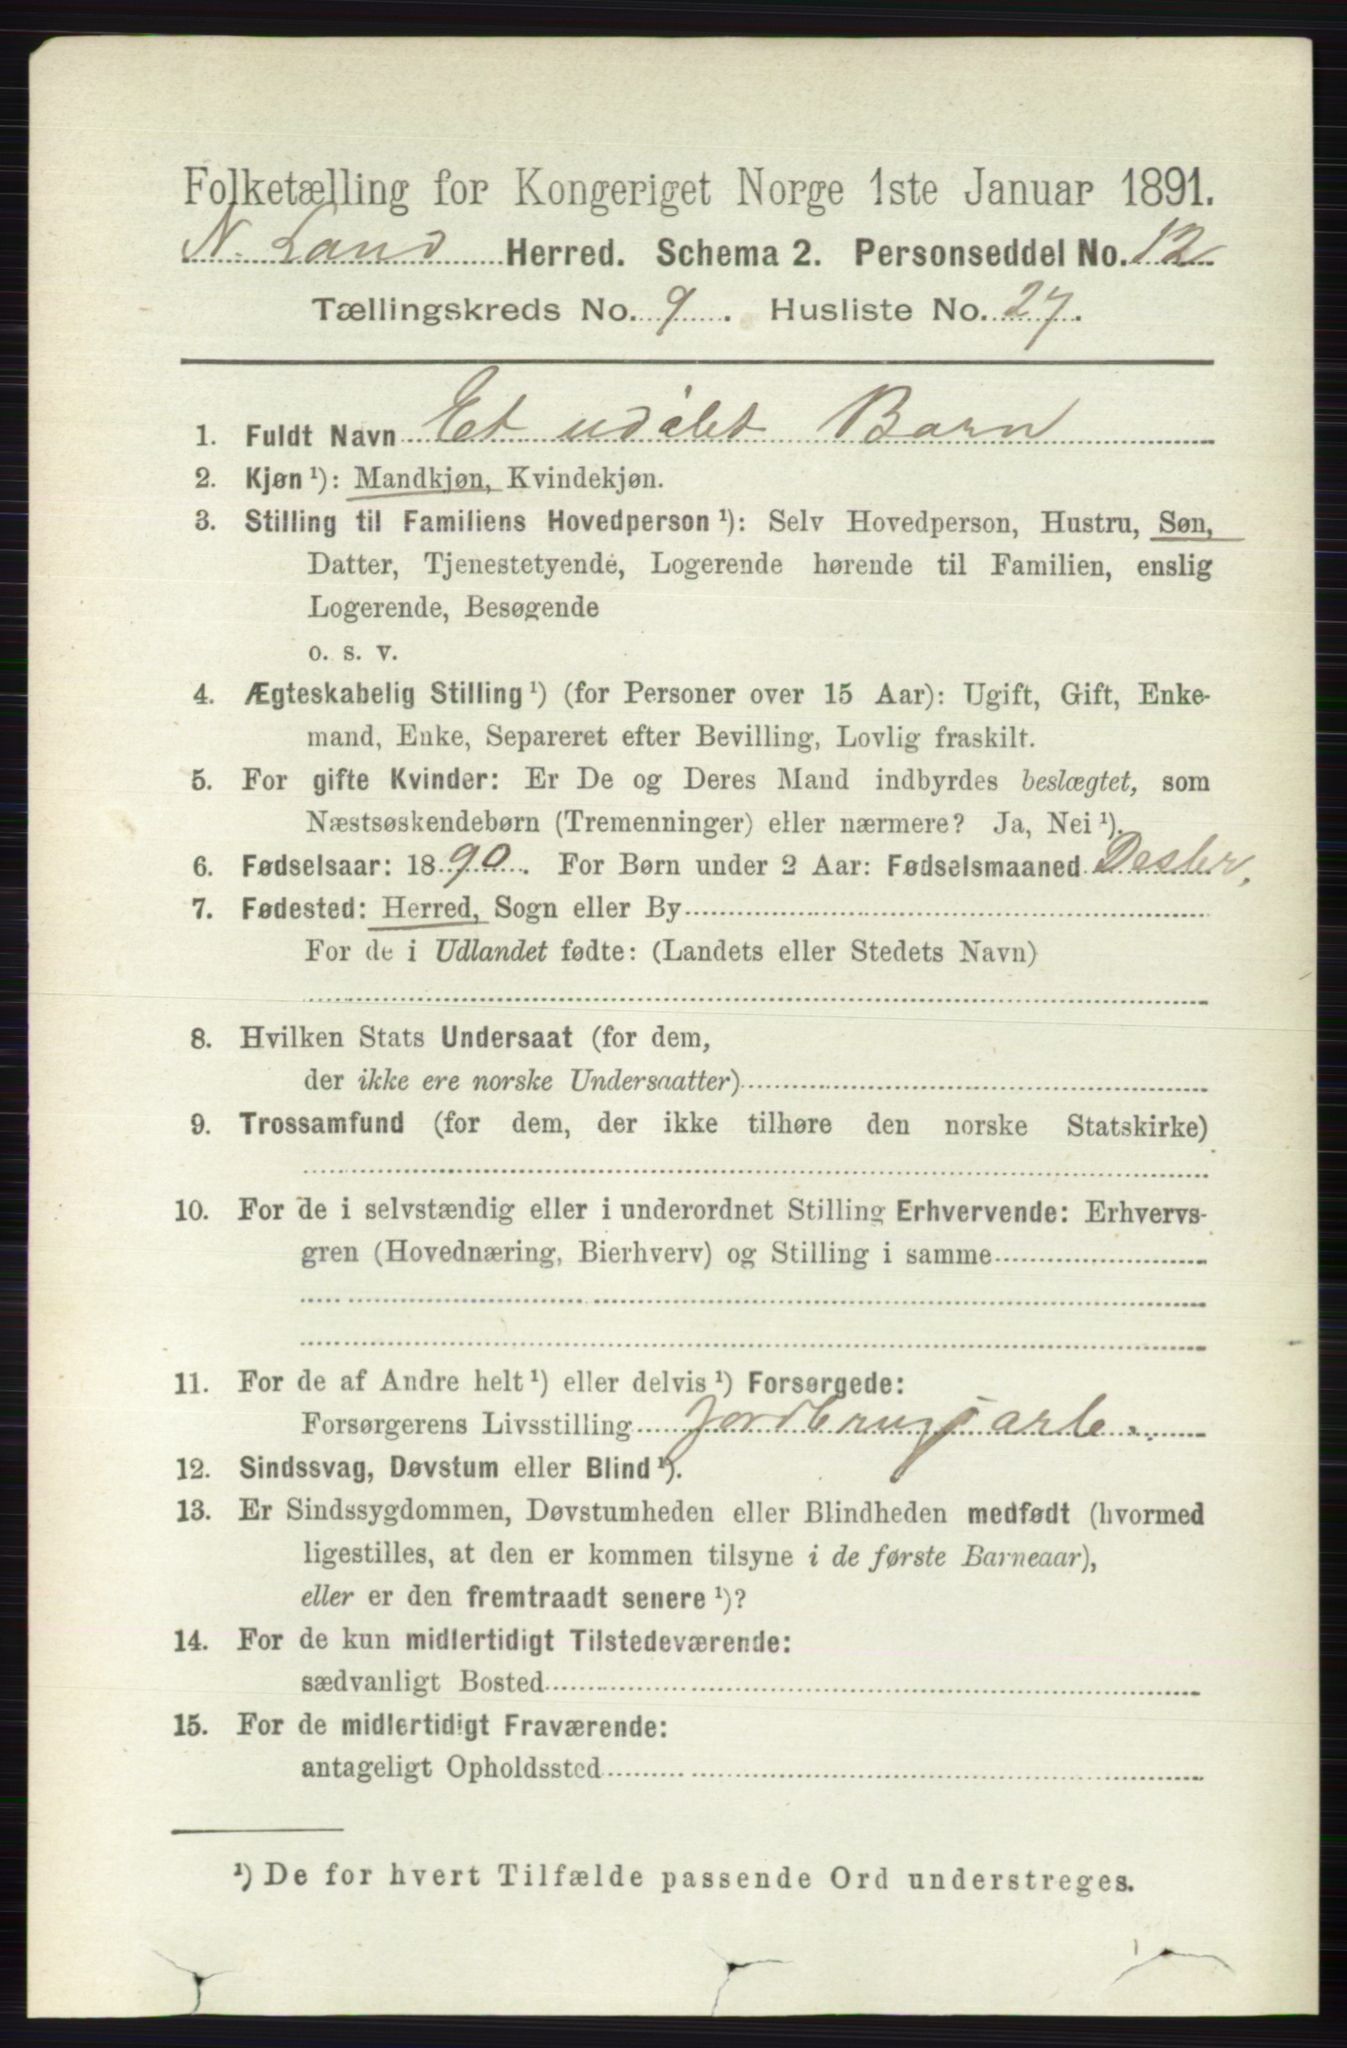 Folketælling for Kongeriget Norge 1ste Januar 1891.
N. Land Herred. Schema 2. Personseddel No. 12
Tællingskreds No. 9. Husliste No. 27.
1. Fuldt Navn Et udøbt Barn
2. Kjøn¹): Mandkjøn, Kvindekjøn.
3. Stilling til Familiens Hovedperson¹): Selv Hovedperson, Hustru, Søn,
Datter, Tjenestetyende, Logerende hørende til Familien, enslig
Logerende, Besøgende
o. s. v.
4. Ægteskabelig Stilling¹) (for Personer over 15 Aar): Ugift, Gift, Enke-
mand, Enke, Separeret efter Bevilling, Lovlig fraskilt.
5. For gifte Kvinder: Er De og Deres Mand indbyrdes beslægtet, som
Næstsøskendebørn (Tremenninger) eller nærmere? Ja, Nei¹).
6. Fødselsaar: 1890. For Børn under 2 Aar: Fødselsmaaned Desbr.
7. Fødested: Herred, Sogn eller By
For de i Udlandet fødte: (Landets eller Stedets Navn)
8. Hvilken Stats Undersaat (for dem,
der ikke ere norske Undersaatter)
9. Trossamfund (for dem, der ikke tilhøre den norske Statskirke)
10. For de i selvstændig eller i underordnet Stilling Erhvervende: Erhvervs-
gren (Hovednæring, Bierhverv) og Stilling i samme
11. For de af Andre helt¹) eller delvis¹) Forsørgede:
Forsørgerens Livsstilling Jordbrugsarb.
12. Sindssvag, Døvstum eller Blind¹).
13. Er Sindssygdommen, Døvstumheden eller Blindheden medfødt (hvormed
ligestilles, at den er kommen tilsyne i de første Barneaar),
eller er den fremtraadt senere¹)?
14. For de kun midlertidigt Tilstedeværende:
sædvanligt Bosted
15. For de midlertidigt Fraværende:
antageligt Opholdssted
¹) De for hvert Tilfælde passende Ord understreges.